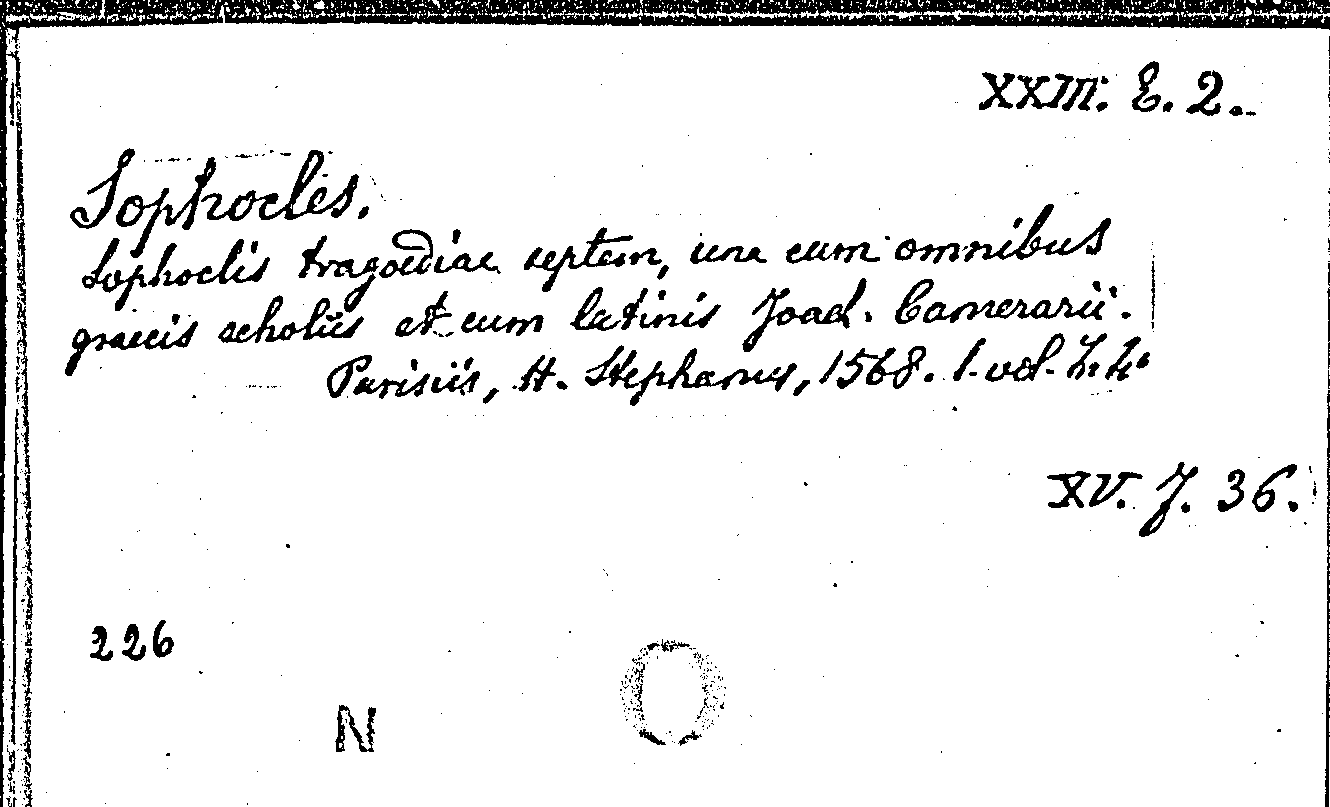 XXIII. E. 2.
Sophocles.
Sophoclis tragoediae septem, una cum omnibus
graecis scholiis et cum latinis Joach. Camerarii.
Parisiis, H. Stephanus, 1568. 1. vol. 4°
XV. J. 36.
226
N